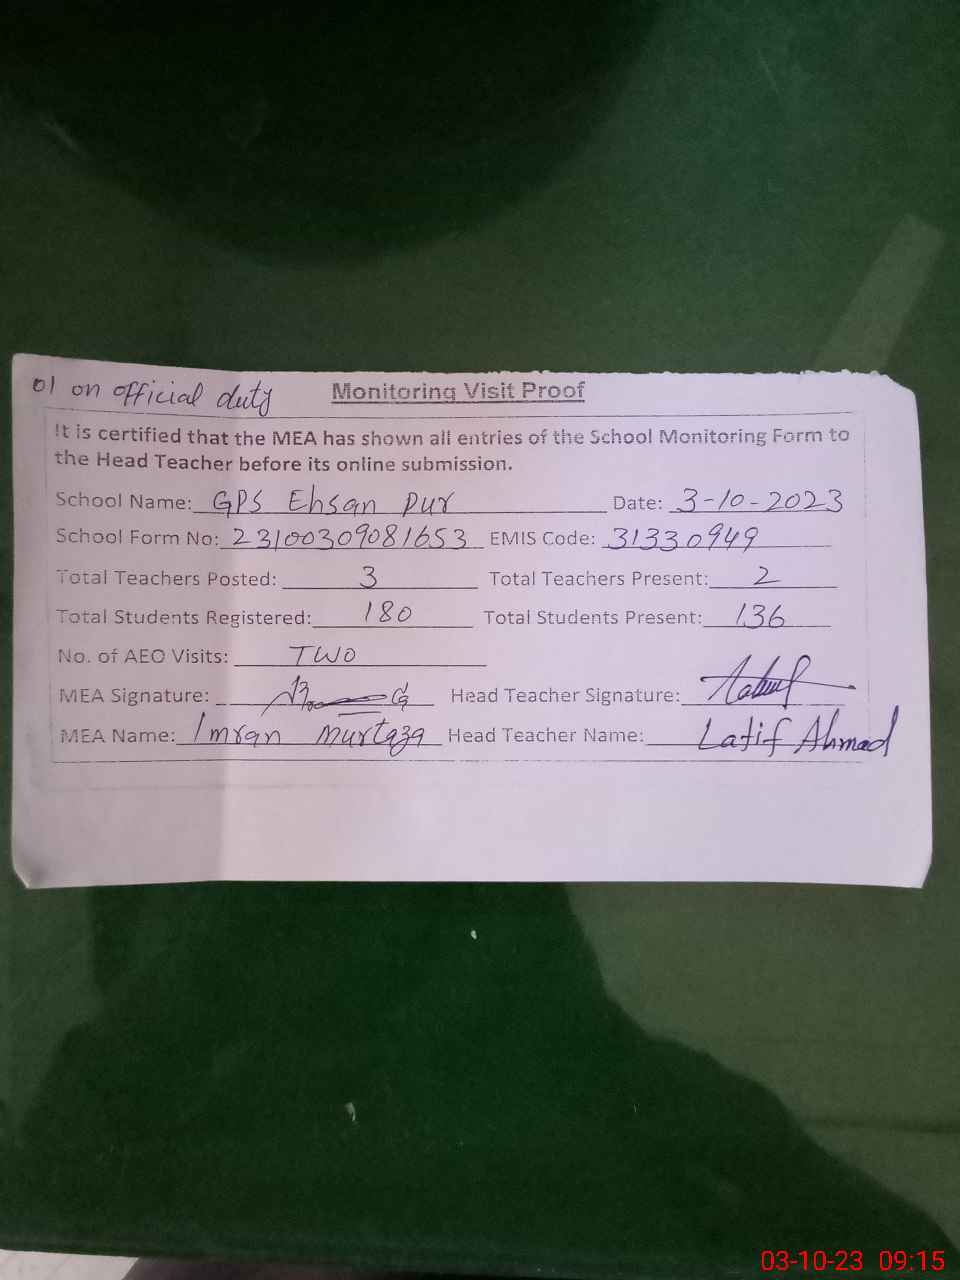 01 on official duty Monitoring Visit Proof
It is certified that the MEA has shown all entries of the School Monitoring Form to
the Head Teacher before its online submission.
School Name: GPS Ehsan Pur Date: 3-10-2023
School Form No: 23100309081653 EMIS Code: 31330949
Total Teachers Posted: 3 Total Teachers Present: 2
Total Students Registered: 180 Total Students Present: 136
No. of AEO Visits: TWO
MEA Signature: Head Teacher Signature:
MEA Name: Imran Murtaza Head Teacher Name: Latif Ahmad
03-10-23 09:15